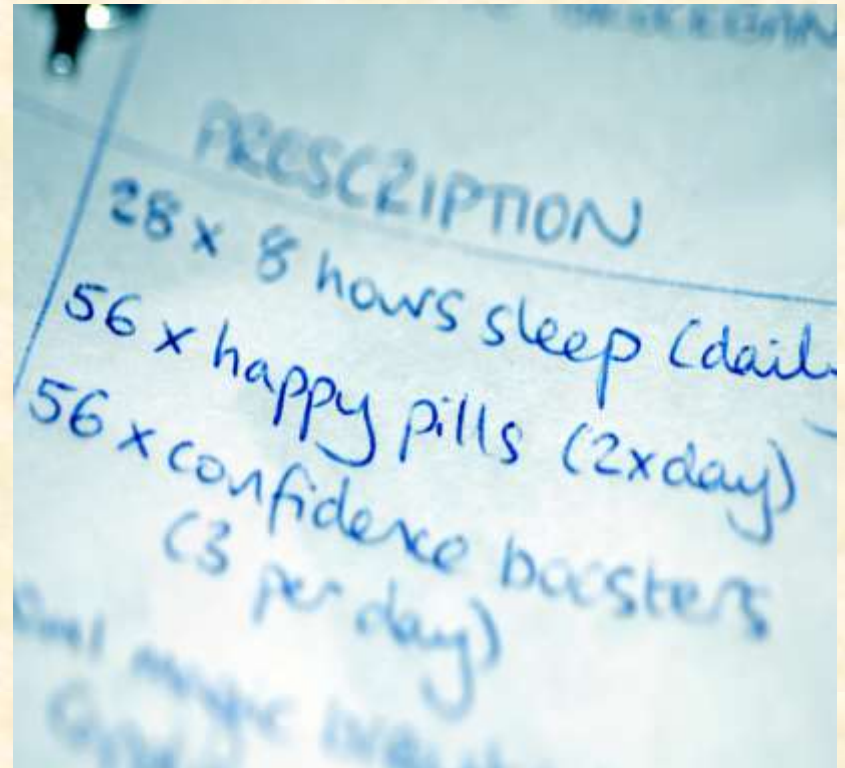 PRESCRIPTION
28 x 8 hours sleep (dail
56 x happy pills (2xday)
56 x confidence boosters
(3 per day)